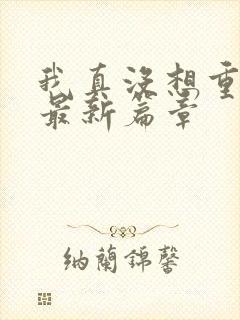 我真没想重
最新篇章
纳兰锦馨